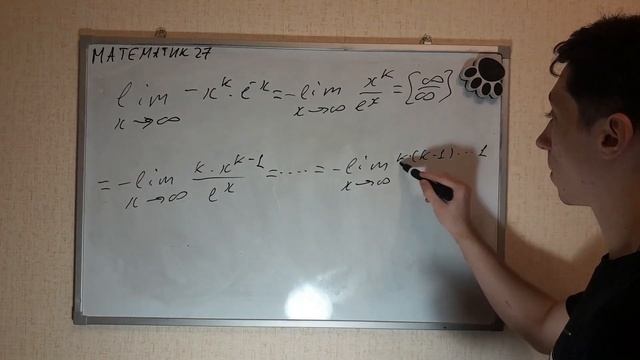 МАТЕМАТИК 27
lim x→∞ -x^k · e^-x = -lim x→∞ x^k/e^x = {∞/∞}
= -lim x→∞ k·x^(k-1)/e^x = ..... = -lim x→∞ k·(k-1)...1